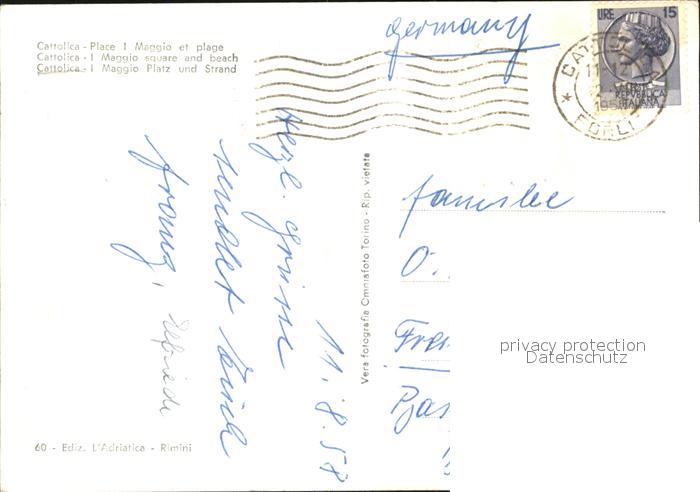 Cattolica - Place I Maggio et plage
Cattolica - I Maggio square and beach
Cattolica - I Maggio Platz und Strand
germany
LIRE 15
REPVBBLICA
ITALIANA
CATTOLICA
FORLI
11.8.58
Herzl. Grüsse
sendet Euch
Franz, Elfriede
Vera fotografia Omniafoto Torino - Rip. vietata
Familie
O.
privacy protection
Datenschutz
60 - Ediz. L'Adriatica - Rimini